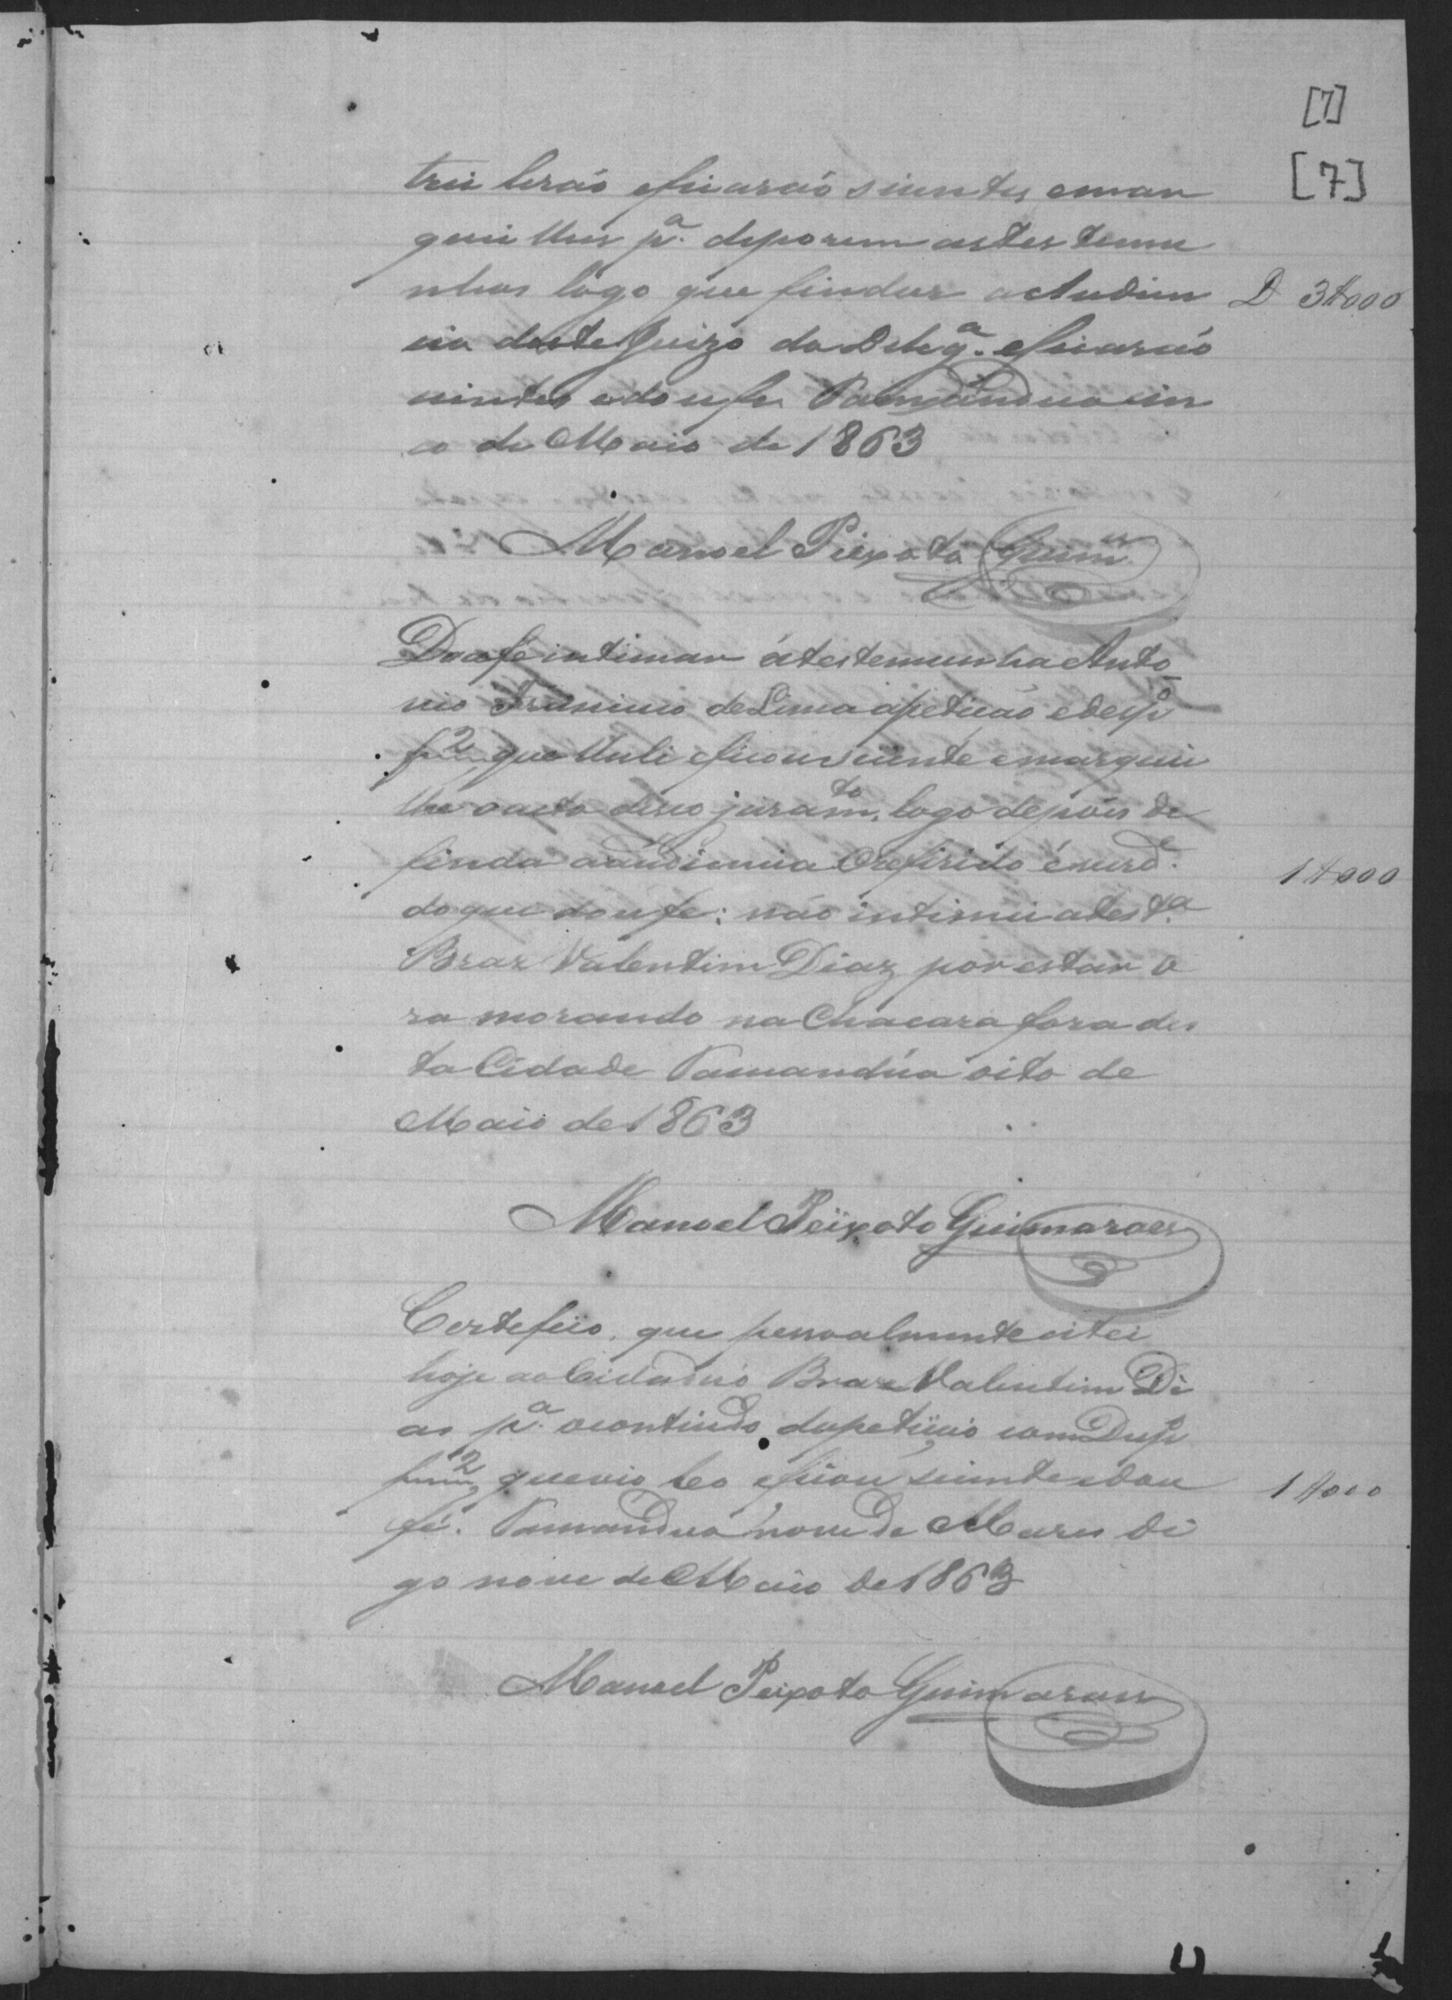 [7]
[7]
tri lerão eficarão sientes emar
quei lhes pª. deporem astestemu
nhas lógo que findar a Audien D 3$000
cia deste Juizo da Delegª. eficarão
cientes edoufe Tamanduá sin
co de Maio de 1863
Manoel Peixoto Guimes
Doufé intimar átestemunha Anto
nio de Lima apetição edespº
que lhili eficou siente emarquei
lhe oacto deseo juramto. logo depois de
finda aaudiencia Oreferido é verde. 1$000
doque doufe: não intimei atestª
Braz Valentim Diaz por estar o
ra morando na Chacara fora des
ta Cidade Tamandúa oito de
Maio de 1863
Manoel Peixoto Guimaraes
Certefico, que pessoalmente citei
hoje ao Cidadão Braz Valentim Di
as pª. ocontiudo dapetição com Despº
quevio leo eficou siente edou 1$000
fé. Tamanduá nove de Março di
go nove de Maio de 1863
Manoel Peixoto Guimaraes